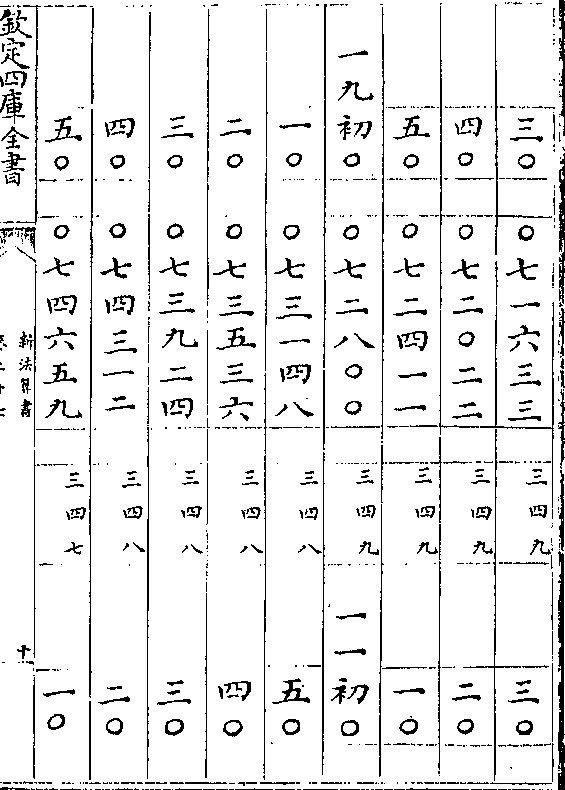 三〇 〇七一六三三 三四九 三〇
四〇 〇七二〇二二 三四九 二〇
五〇 〇七二四一一 三四九 一〇
一九初〇 〇七二八〇〇 三四九 一一初〇
一〇 〇七三一四八 三四八 五〇
二〇 〇七三五三六 三四八 四〇
三〇 〇七三九二四 三四八 三〇
四〇 〇七四三一二 三四八 二〇
五〇 〇七四六五九 三四七 一〇
欽定四庫全書
新法算書
十